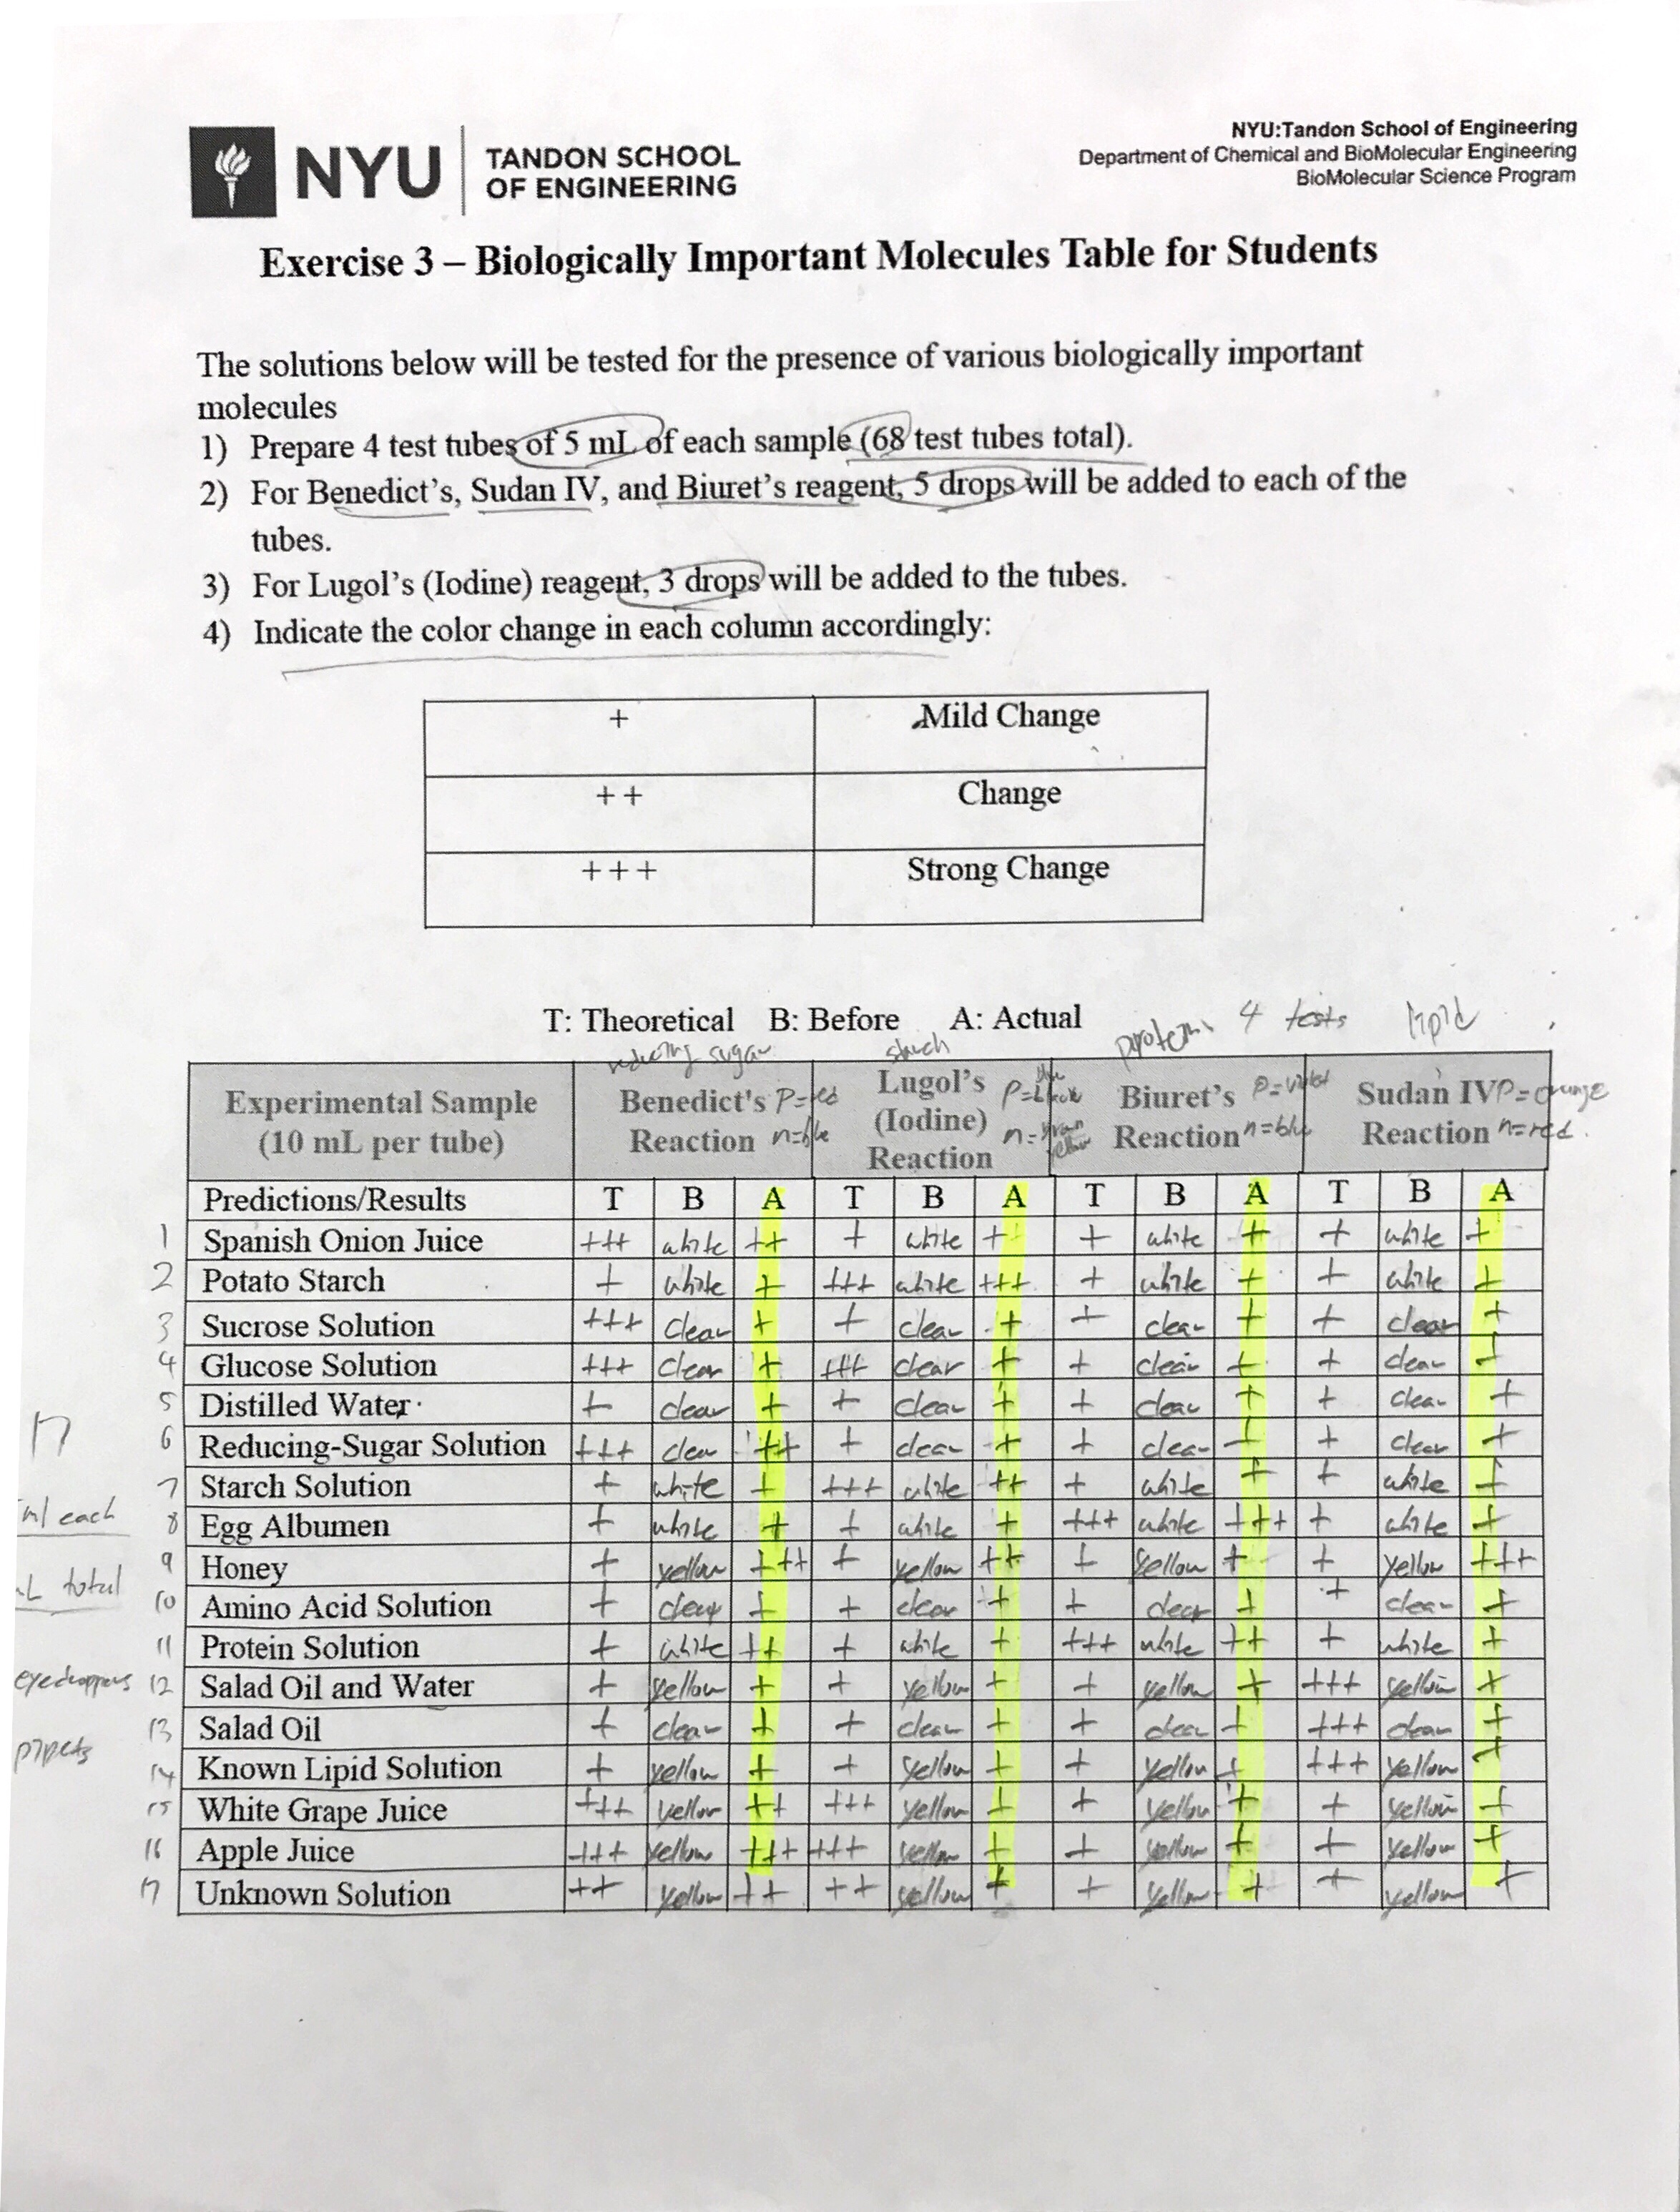 NYU
TANDON SCHOOL
OF ENGINEERING
NYU:Tandon School of Engineering
Department of Chemical and BioMolecular Engineering
BioMolecular Science Program
Exercise 3 – Biologically Important Molecules Table for Students
The solutions below will be tested for the presence of various biologically important
molecules
1) Prepare 4 test tubes of 5 mL of each sample (68 test tubes total).
2) For Benedict's, Sudan IV, and Biuret's reagent, 5 drops will be added to each of the
tubes.
3) For Lugol's (Iodine) reagent, 3 drops will be added to the tubes.
4) Indicate the color change in each column accordingly:
+ Mild Change
++ Change
+++ Strong Change
T: Theoretical B: Before A: Actual
reducing sugar starch protein 4 tests lipid
Experimental Sample
(10 mL per tube)
Benedict's P=red
Reaction n=blue
Lugol's
(Iodine)
Reaction
yellow
Biuret's P=violet
Reaction n=blue
Sudan IV P=orange
Reaction n=red.
Predictions/Results T B A T B A T B A T B A
1 Spanish Onion Juice +++ white ++ + white + + white + + white +
2 Potato Starch + white + +++ white +++ + white + + white +
3 Sucrose Solution +++ clear + + clear + + clear + + clear +
4 Glucose Solution +++ clear + +++ clear + + clear + + clear +
5 Distilled Water + clear + + clear + + clear + + clear +
6 Reducing-Sugar Solution +++ clear ++ + clear + + clear + + clear +
7 Starch Solution + white + +++ white ++ + white + + white +
8 Egg Albumen + white + + white + +++ white +++ + white +
9 Honey + yellow +++ + yellow ++ + yellow + + yellow +++
10 Amino Acid Solution + clear + + clear + + clear + + clear +
11 Protein Solution + white ++ + white + +++ white ++ + white +
12 Salad Oil and Water + yellow + + yellow + + yellow + +++ yellow +
13 Salad Oil + clear + + clear + + clear + +++ clear +
14 Known Lipid Solution + yellow + + yellow + + yellow + +++ yellow +
15 White Grape Juice +++ yellow ++ +++ yellow + + yellow + + yellow +
16 Apple Juice +++ yellow +++ +++ yellow + + yellow + + yellow +
17 Unknown Solution ++ yellow ++ ++ yellow + + yellow + + yellow +
17
ml each
L total
eyedroppers
pipets